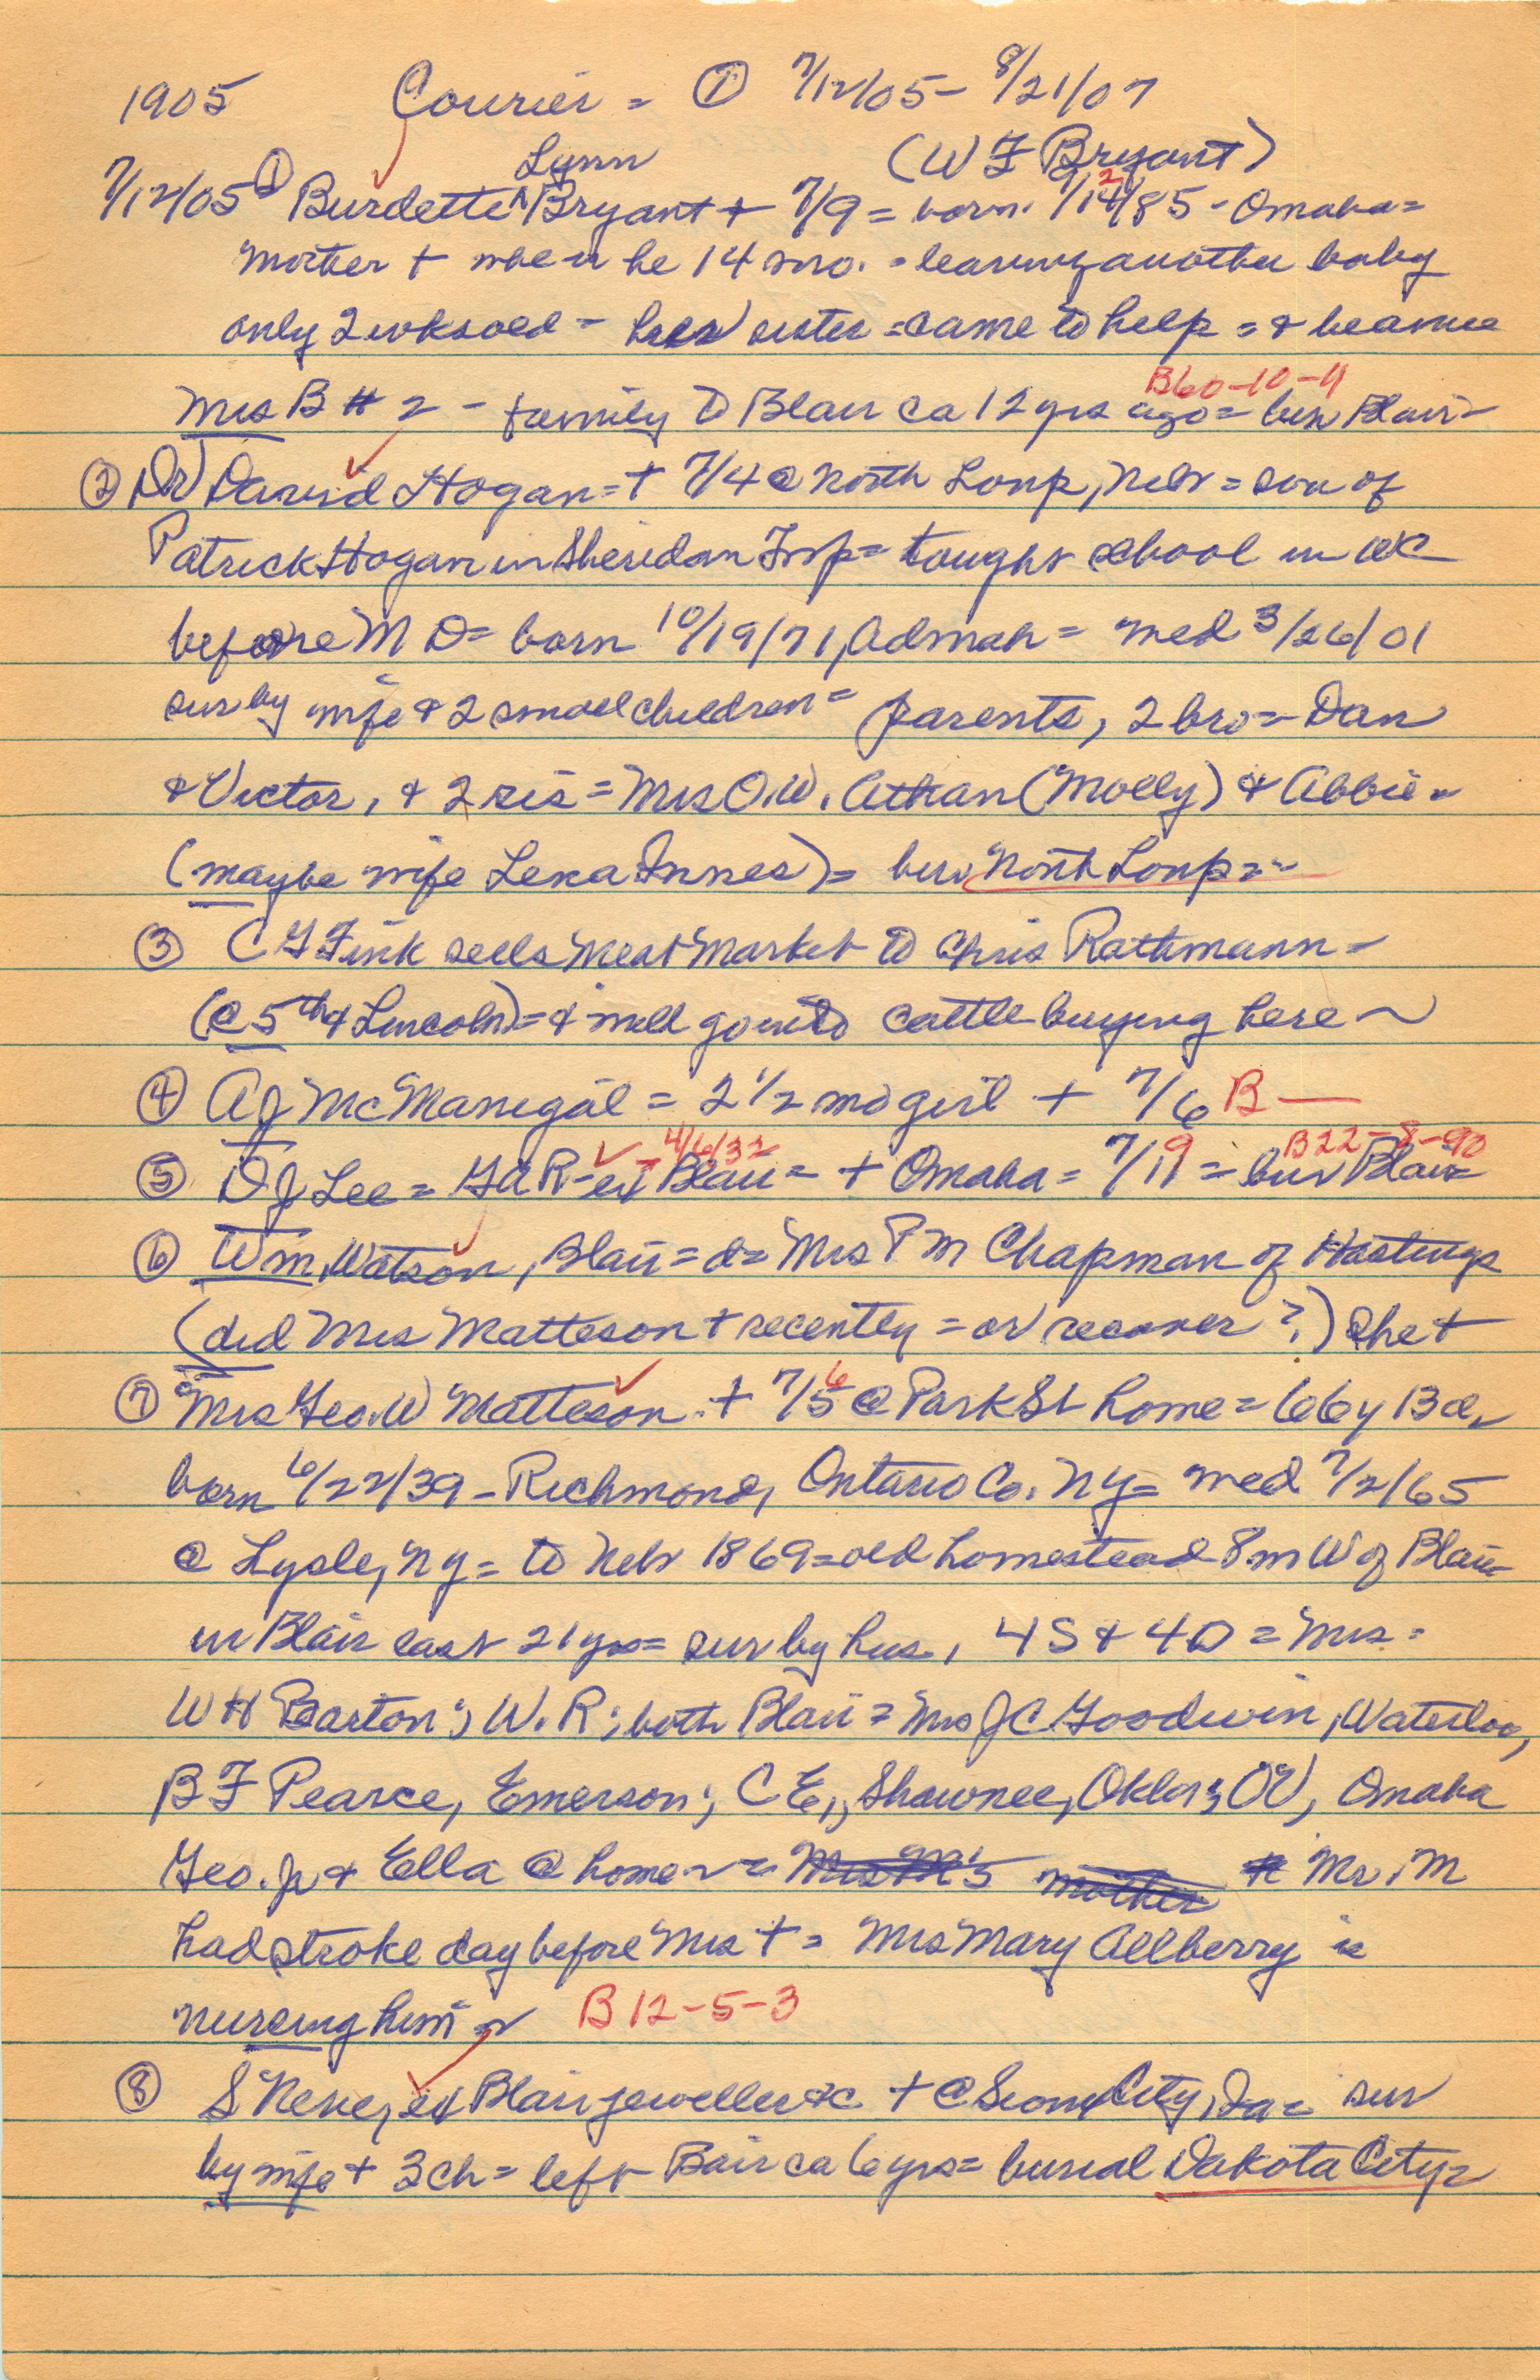 1905 Courier = ① 7/12/05 - 8/21/07
Lynn (W F Bryant)
7/12/05 ① Burdette ^ Bryant + 7/9 = born 7/12/85 - Omaha =
mother + when he 14 mo. = leaving another baby
only 2 wks old - her sister = came to help = & became
B60-10-4
Mrs B # 2 - family to Blair ca 12 yrs ago = bur Blair -
② Dr David Hogan = + 7/4 @ North Loup, Nebr = son of
Patrick Hogan in Sheridan Twp = taught school in WC
before MD = born 10/19/71, Admah = med 3/26/01
sur by wife & 2 small children = parents, 2 bro = Dan
& Victor, & 2 sis = Mrs O.W. (Molly) & Abbie =
(maybe wife Lena Innes) = bur North Loup =
③ C G Fink sells Meat Market to Chris Rathmann =
(@ 5th & Lincoln) = & will go into cattle buying here ~
④ A J McManigal = 2 1/2 mo girl + 7/6 B —
4/6/32 B22-8-90
⑤ D J Lee = GAR - ex Blair = + Omaha = 7/19 = bur Blair =
⑥ Wm Watson, Blair = d = Mrs P M Chapman of Hastings
(did Mrs Matteson + recently = or recover?) She +
⑦ Mrs Geo. W Matteson + 7/5 6 @ Park St home = 66y 13d,
born 6/22/39 - Richmond, Ontario Co. NY = med 7/2/65
@ Lysle, NY = to Nebr 1869 = old homestead 8 m W of Blair
in Blair last 21 yrs = sur by hus, 4 S & 4 D = Mrs =
W H Barton; W. R; both Blair = Mrs J C Goodwin, Waterloo,
B F Pearce, Emerson; C E, Shawnee, Okla; OV, Omaha
Geo. Jr & Ella @ home ~ = Mrs M's mother Mr. M
had stroke day before Mrs + = Mrs Mary Allberry is
nursing him ~ B 12-5-3
⑧ S ex Blair jeweller &c + @ Sioux City, Ia = sur
by wife + 3 ch = left Bair ca 6 yrs = burial Dakota City =